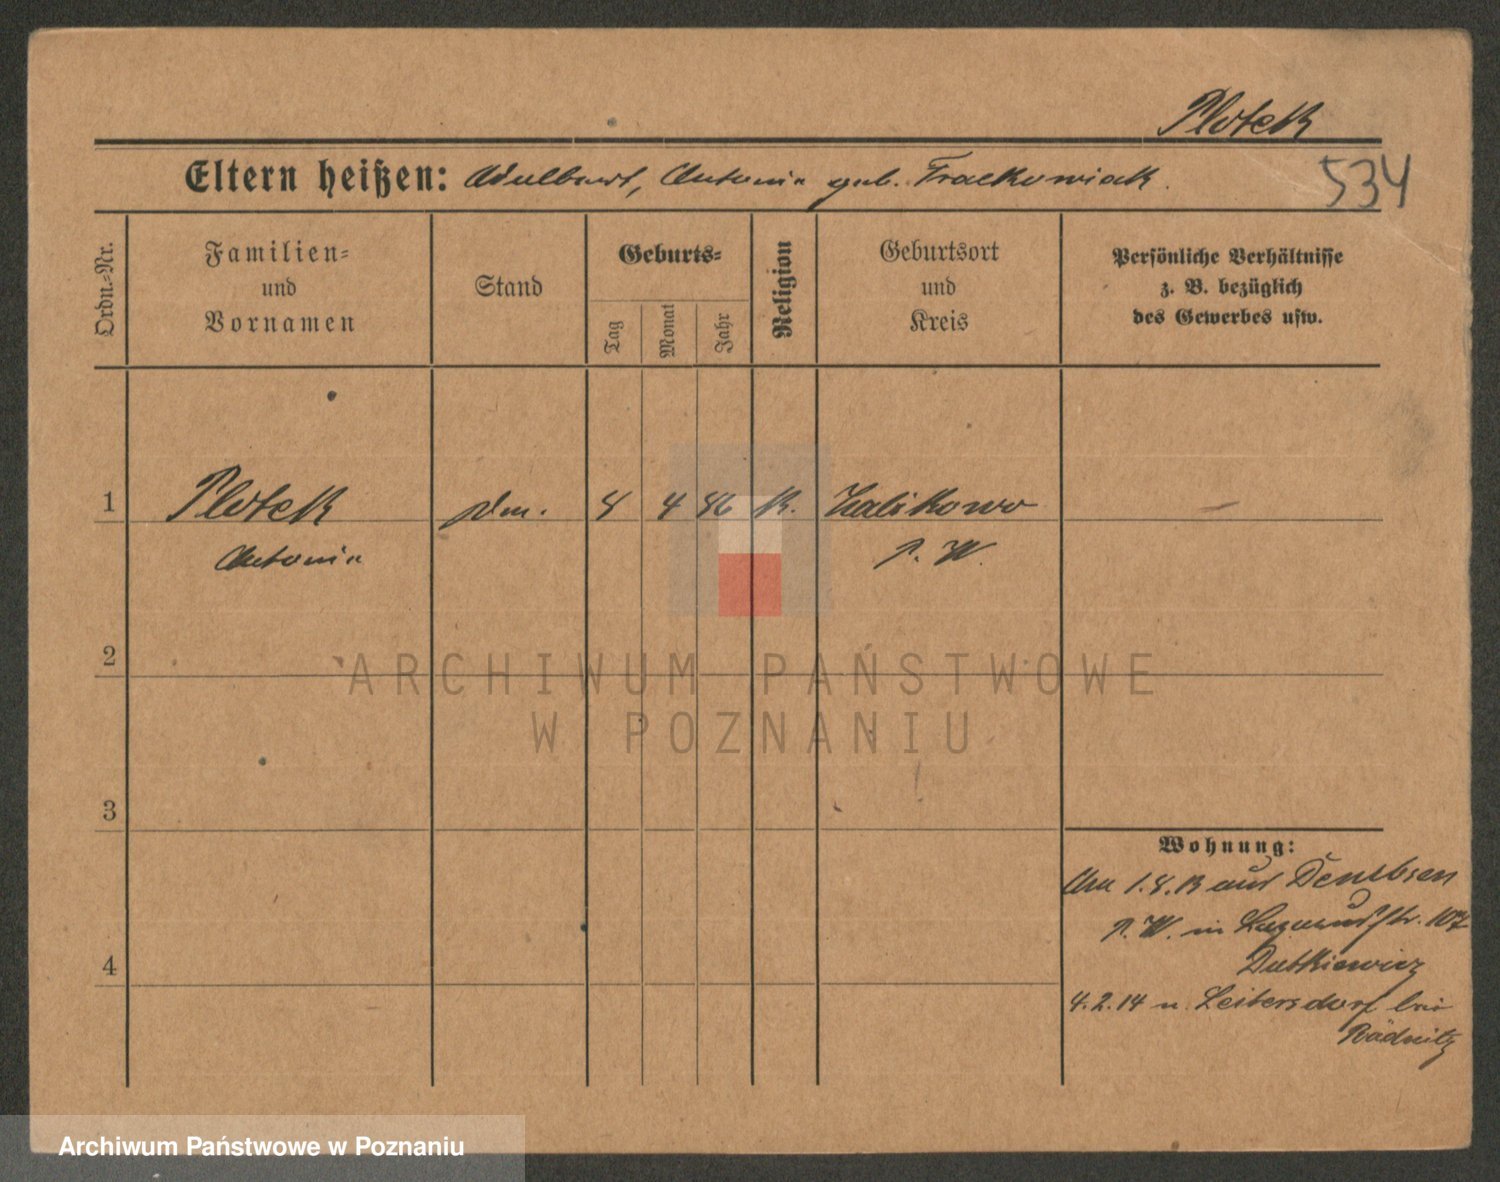 Plotek
Eltern heißen: Adalbert, Antonia geb. Frackowiak.
534
Ordn.-Nr.
Familien-
und
Vornamen
Stand
Geburts-
Tag
Monat
Jahr
Religion
Geburtsort
und
Kreis
Persönliche Verhältnisse
z. B. bezüglich
des Gewerbes usw.
1
Plotek
Antonia
8
4
86
K.
Zalikowo
P. W.
2
ARCHIWUM PAŃSTWOWE
W POZNANIU
3
Wohnung:
Am 1.8.13 aus Dembsen
P. W. in str. 107
Dutkiewicz
4.2.14 n. Leitersdorf bei
Rädnitz
4
Archiwum Państwowe w Poznaniu